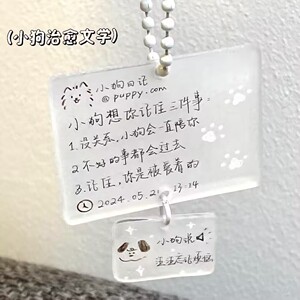 (小狗治愈文学)
小狗日记
@puppy.com
小狗想你记住三件事:
1.没关系,小狗会一直陪你
2.不好的事都会过去
3.记住,你是被爱着的
2024.05.21 13:14
小狗说
汪汪忘记烦恼